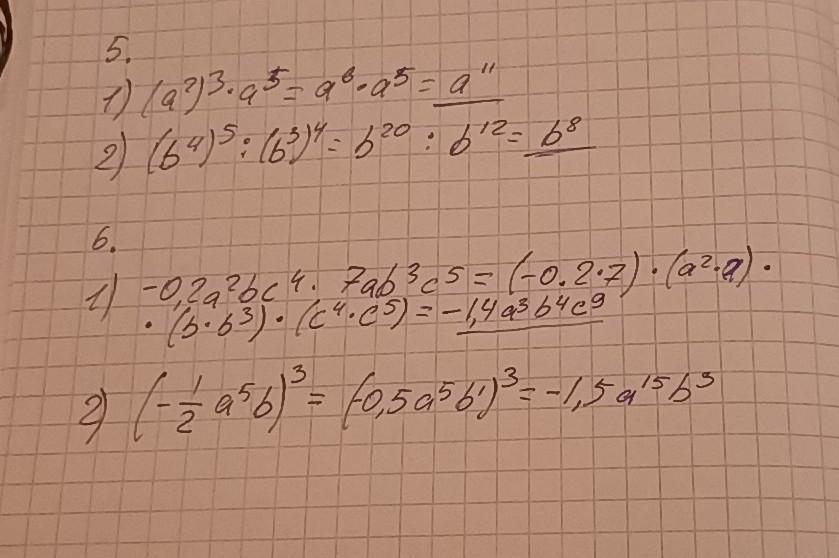 5.
1) (a²)³·a⁵ = a⁶·a⁵ = a¹¹
2) (b⁴)⁵:(b³)⁴ = b²⁰ : b¹² = b⁸
6.
1) -0,2a²bc⁴· 7ab³c⁵ = (-0.2·7)·(a²·a)·
·(b·b³)·(c⁴·c⁵) = -1,4a³b⁴c⁹
2) (-1/2 a⁵b)³ = (-0,5a⁵b¹)³ = -1,5a¹⁵b³